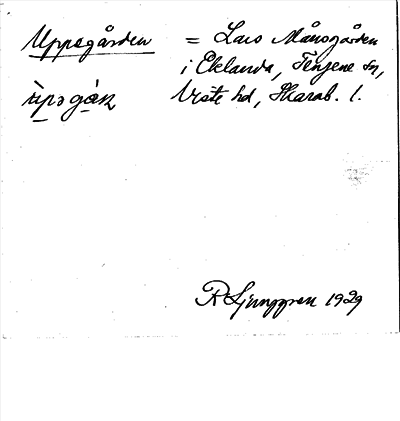 Uppsgården = Lars Månsgården
i Eklanda, Tengene sn,
ùpsgàɳ Viste hd, Skarab. l.
R Ljunggren 1929